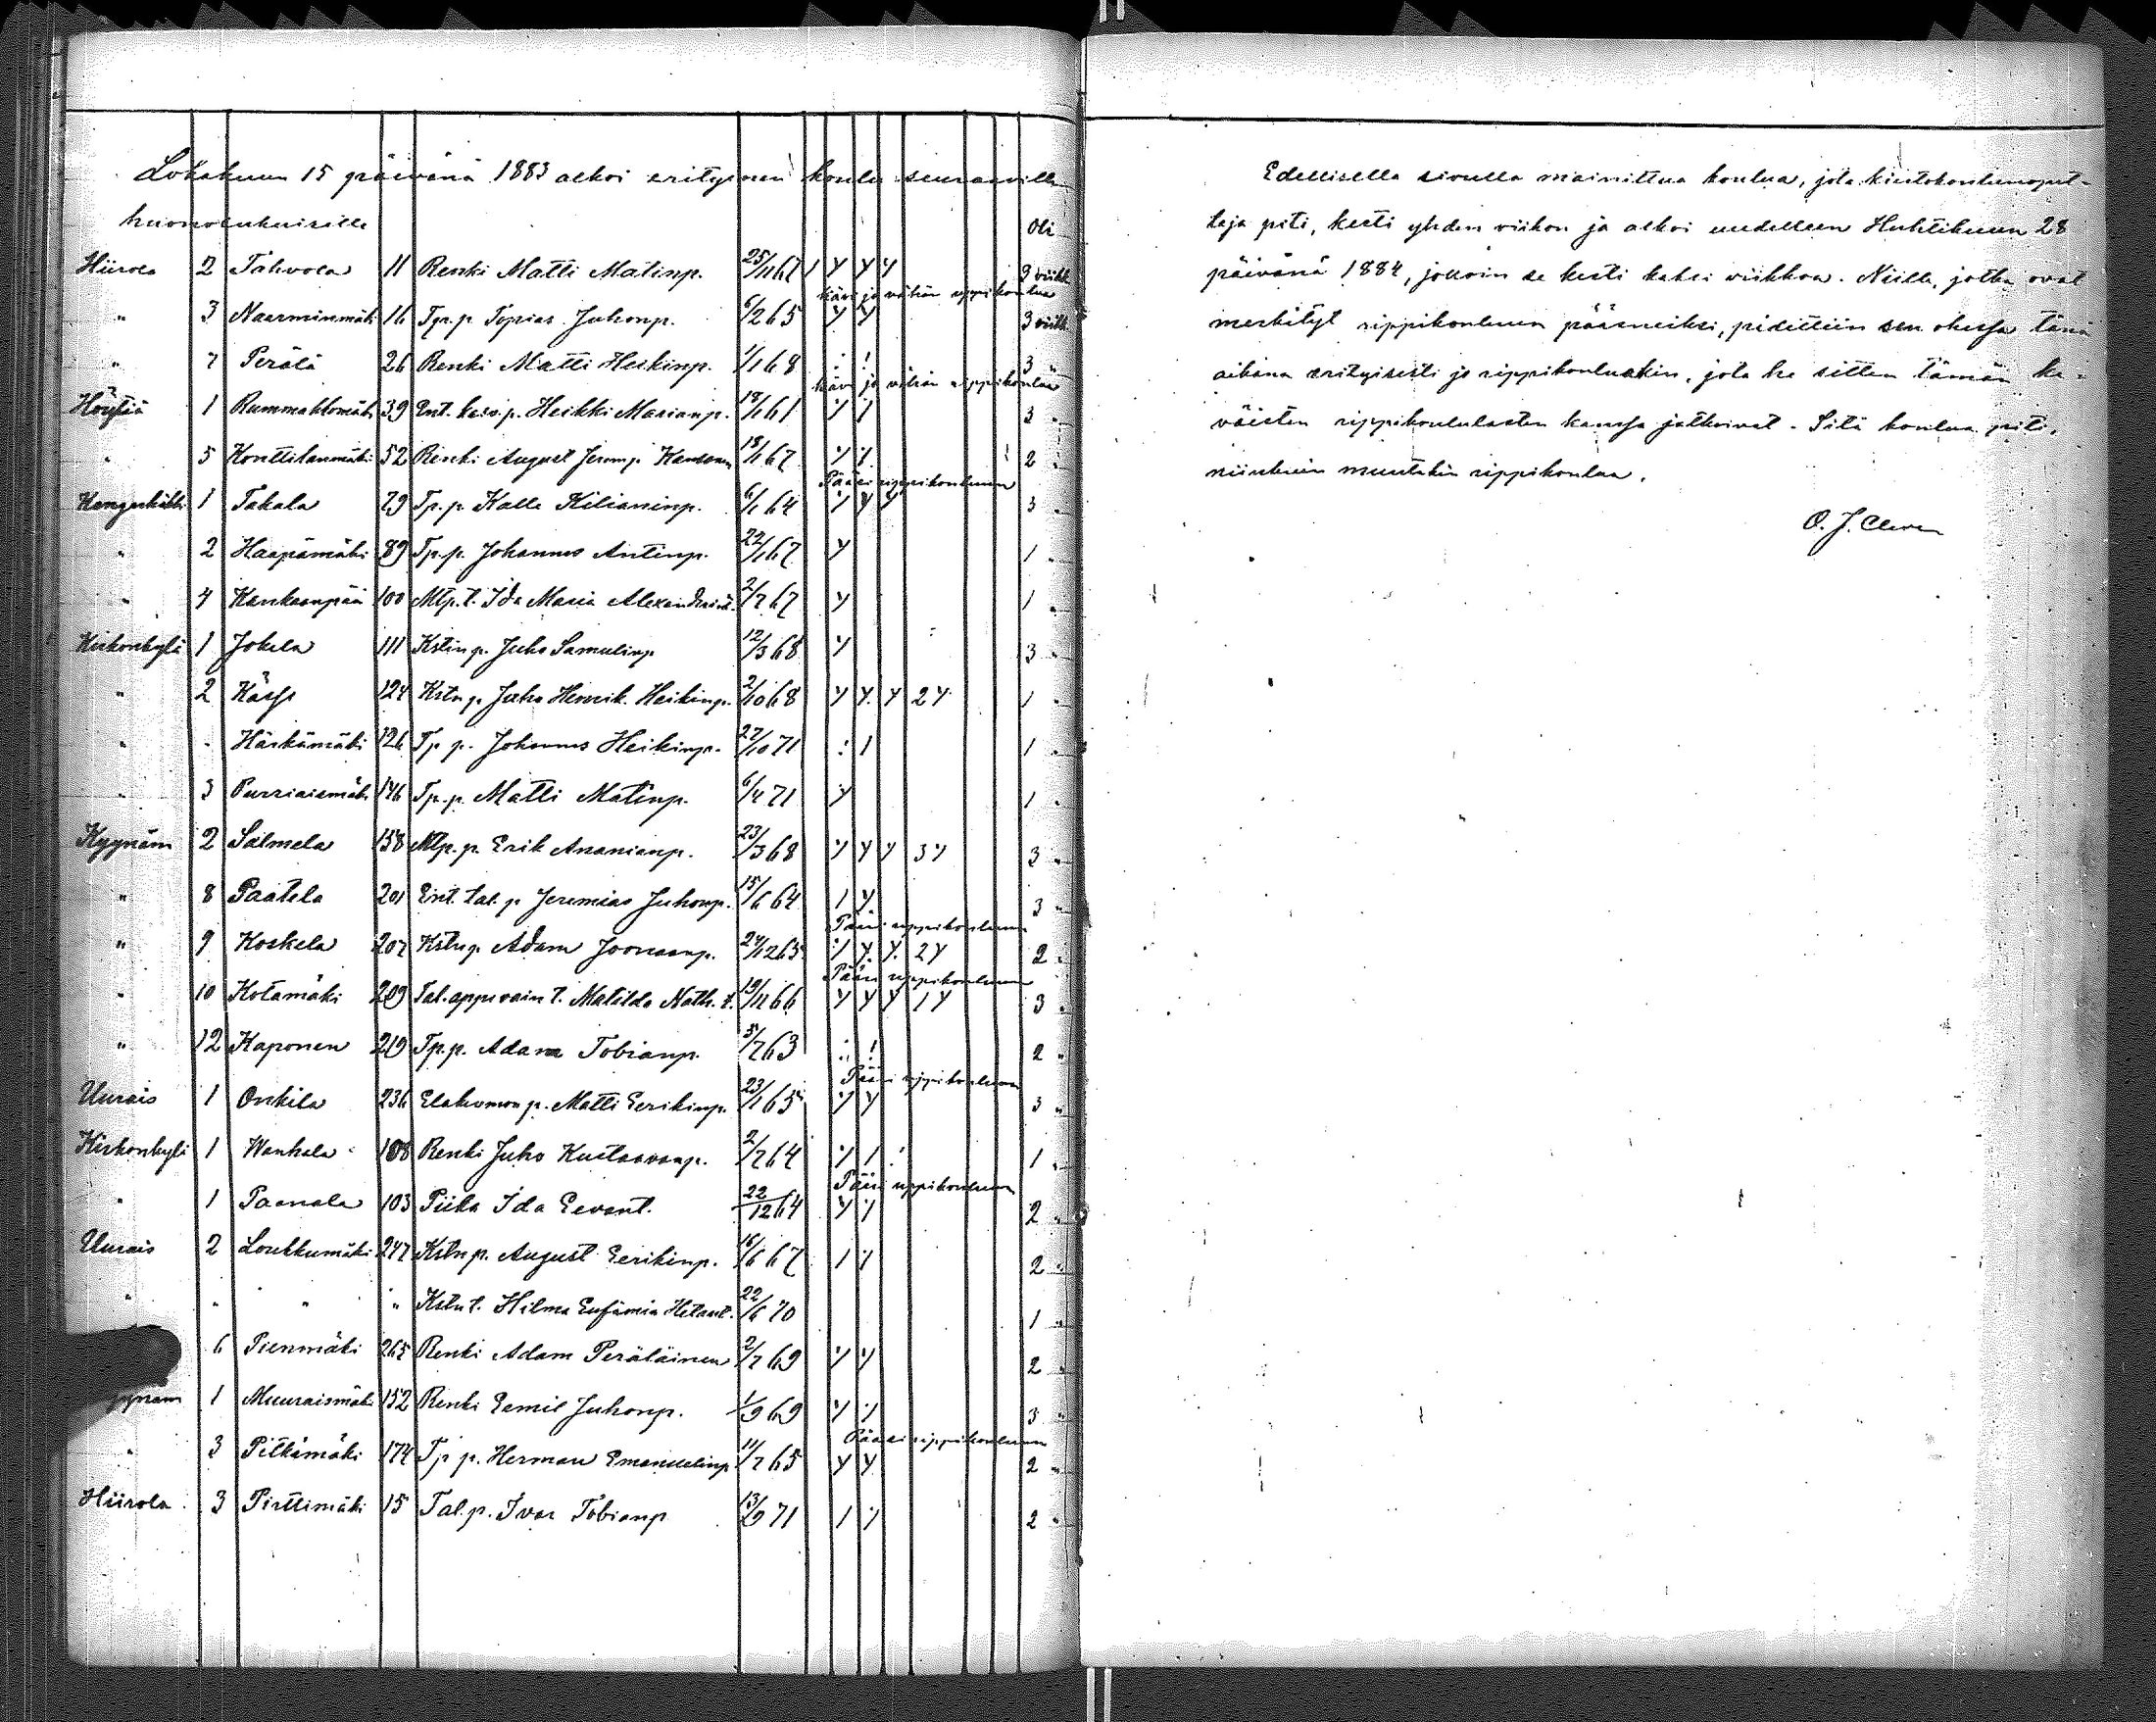 Lokakuun 15 päivänä 1883 alkoi erityinen koulu seuraaville
huonolukuisille Oli
Hiirola 2 Tahvola 11 Renki Matti Matinp. 25/11 67 1 y y y 2 viikk.
Kävi jo vähän rippikoulua
" 3 Naarminmäki 16 Tp. p. Topias Juhonp. 6/2 65 y y 3 viikk.
" 7 Perälä 26 Renki Matti Heikinp. 1/1 68 3 "
Kävi jo vähän rippikoulua
Höytiä 1 Rummakkomäki 39 Ent. p. Heikki Marianp. 61 3 "
" 5 Konttilanmäki 52 Renki August Jerem.p. 18/1 67 2 "
Pääsi rippikouluun
Kangashäkki 1 Takala 79 Tp. p. Kalle Kilianinp. 6/1 64 y y y 3
" 2 Haapamäki 89 Tp. p. Johannes Antinp. 22/1 67 y 1 "
" 4 Kankaanpää 100 Mlp. t. Ida Maria 2/7 67 y 1 "
Kirkonkylä 1 Jokela 111 Kstin p. Juho Samulinp. 12/3 68 y 3 "
" 2 Kärfs 124 Kstn p. Juho Henrik Heikinp. 2/10 68 y y y 2 y 1 "
" " Härkämäki 126 Tp. p. Johannes Heikinp. 27/10 71 : 1 1 "
" 3 Purriaismäki 146 Tp. p. Matti Matinp. 6/4 71 y 1 "
Kyynäm 2 Salmela 158 Mlp. p. Erik Ananianp. 23/3 68 y y y 3 y 3 "
" 8 Paatela 201 Ent. tal. p. Jeremias Juhonp. 15/6 64 1 y 3 "
Pääsi rippikouluun
" 9 Koskela 207 Kstn p. Adam Joonaanp. 24/12 65 y y y 2 y 2 "
Pääsi rippikouluun
" 10 Kotamäki 209 Tal. appivain t. Matilda Nath. t. 19/11 66 y y y 1 y 3 "
" 12 Kaponen 219 Tp. p. Adam Tobianp. 5/7 63 2 "
Pääsi rippikouluun
Uurais 1 Onkila 236 Elakomon p. Matti Eerikinp. 23/1 65 y y 3 "
Kirkonkylä 1 Wanhala 108 Renki Juho Kustaavanp. 2/7 64 1 "
Pääsi rippikouluun
" 1 Paanala 103 Piika Ida Eevant. 22/12 64 y y 2 "
Uurais 2 Loukkumäki 247 Kstn p. August Eerikinp. 16/6 67 1 y 2 "
" " " " Kstn t. Hilma Eufämia 22/6 70 1 "
6 Pienmäki 265 Renki Adam Peräläinen 2/7 69 y y 2 "
1 Muuraismäki 152 Renki Eemil Juhonp. 1/9 69 y y 3 "
Pääsi rippikouluun
" 3 Pitkämäki 174 Tp. p. Herman Emanuelinp. 11/7 65 y y 2 "
Hiirola 3 Pirttimäki 15 Tal. p. Ivar Tobianp 13/9 71 1 y 2 "
Edellisellä sivulla mainittua koulua, jota kiertokoulunopet-
taja piti, kesti yhden viikon ja alkoi uudelleen Huhtikuun 28
päivänä 1884, jolloin se kesti kaksi viikkoa. Niille, jotka ovat
merkityt rippikouluun päässeiksi, pidettiin sen ohessa tänä
aikana erityisesti jo rippikouluakin, jota he sitten tämän ke-
väisten rippikoululasten kanssa jatkoivat. Sitä koulua piti,
niinkuin muutakin rippikoulua,
O. J. Cleve